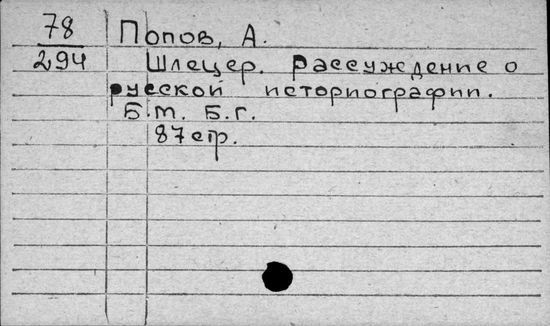 78
294
Попов, А.
Шлецер. Рассуждение о
русской историографии.
Б.м. Б.г.
87 стр.